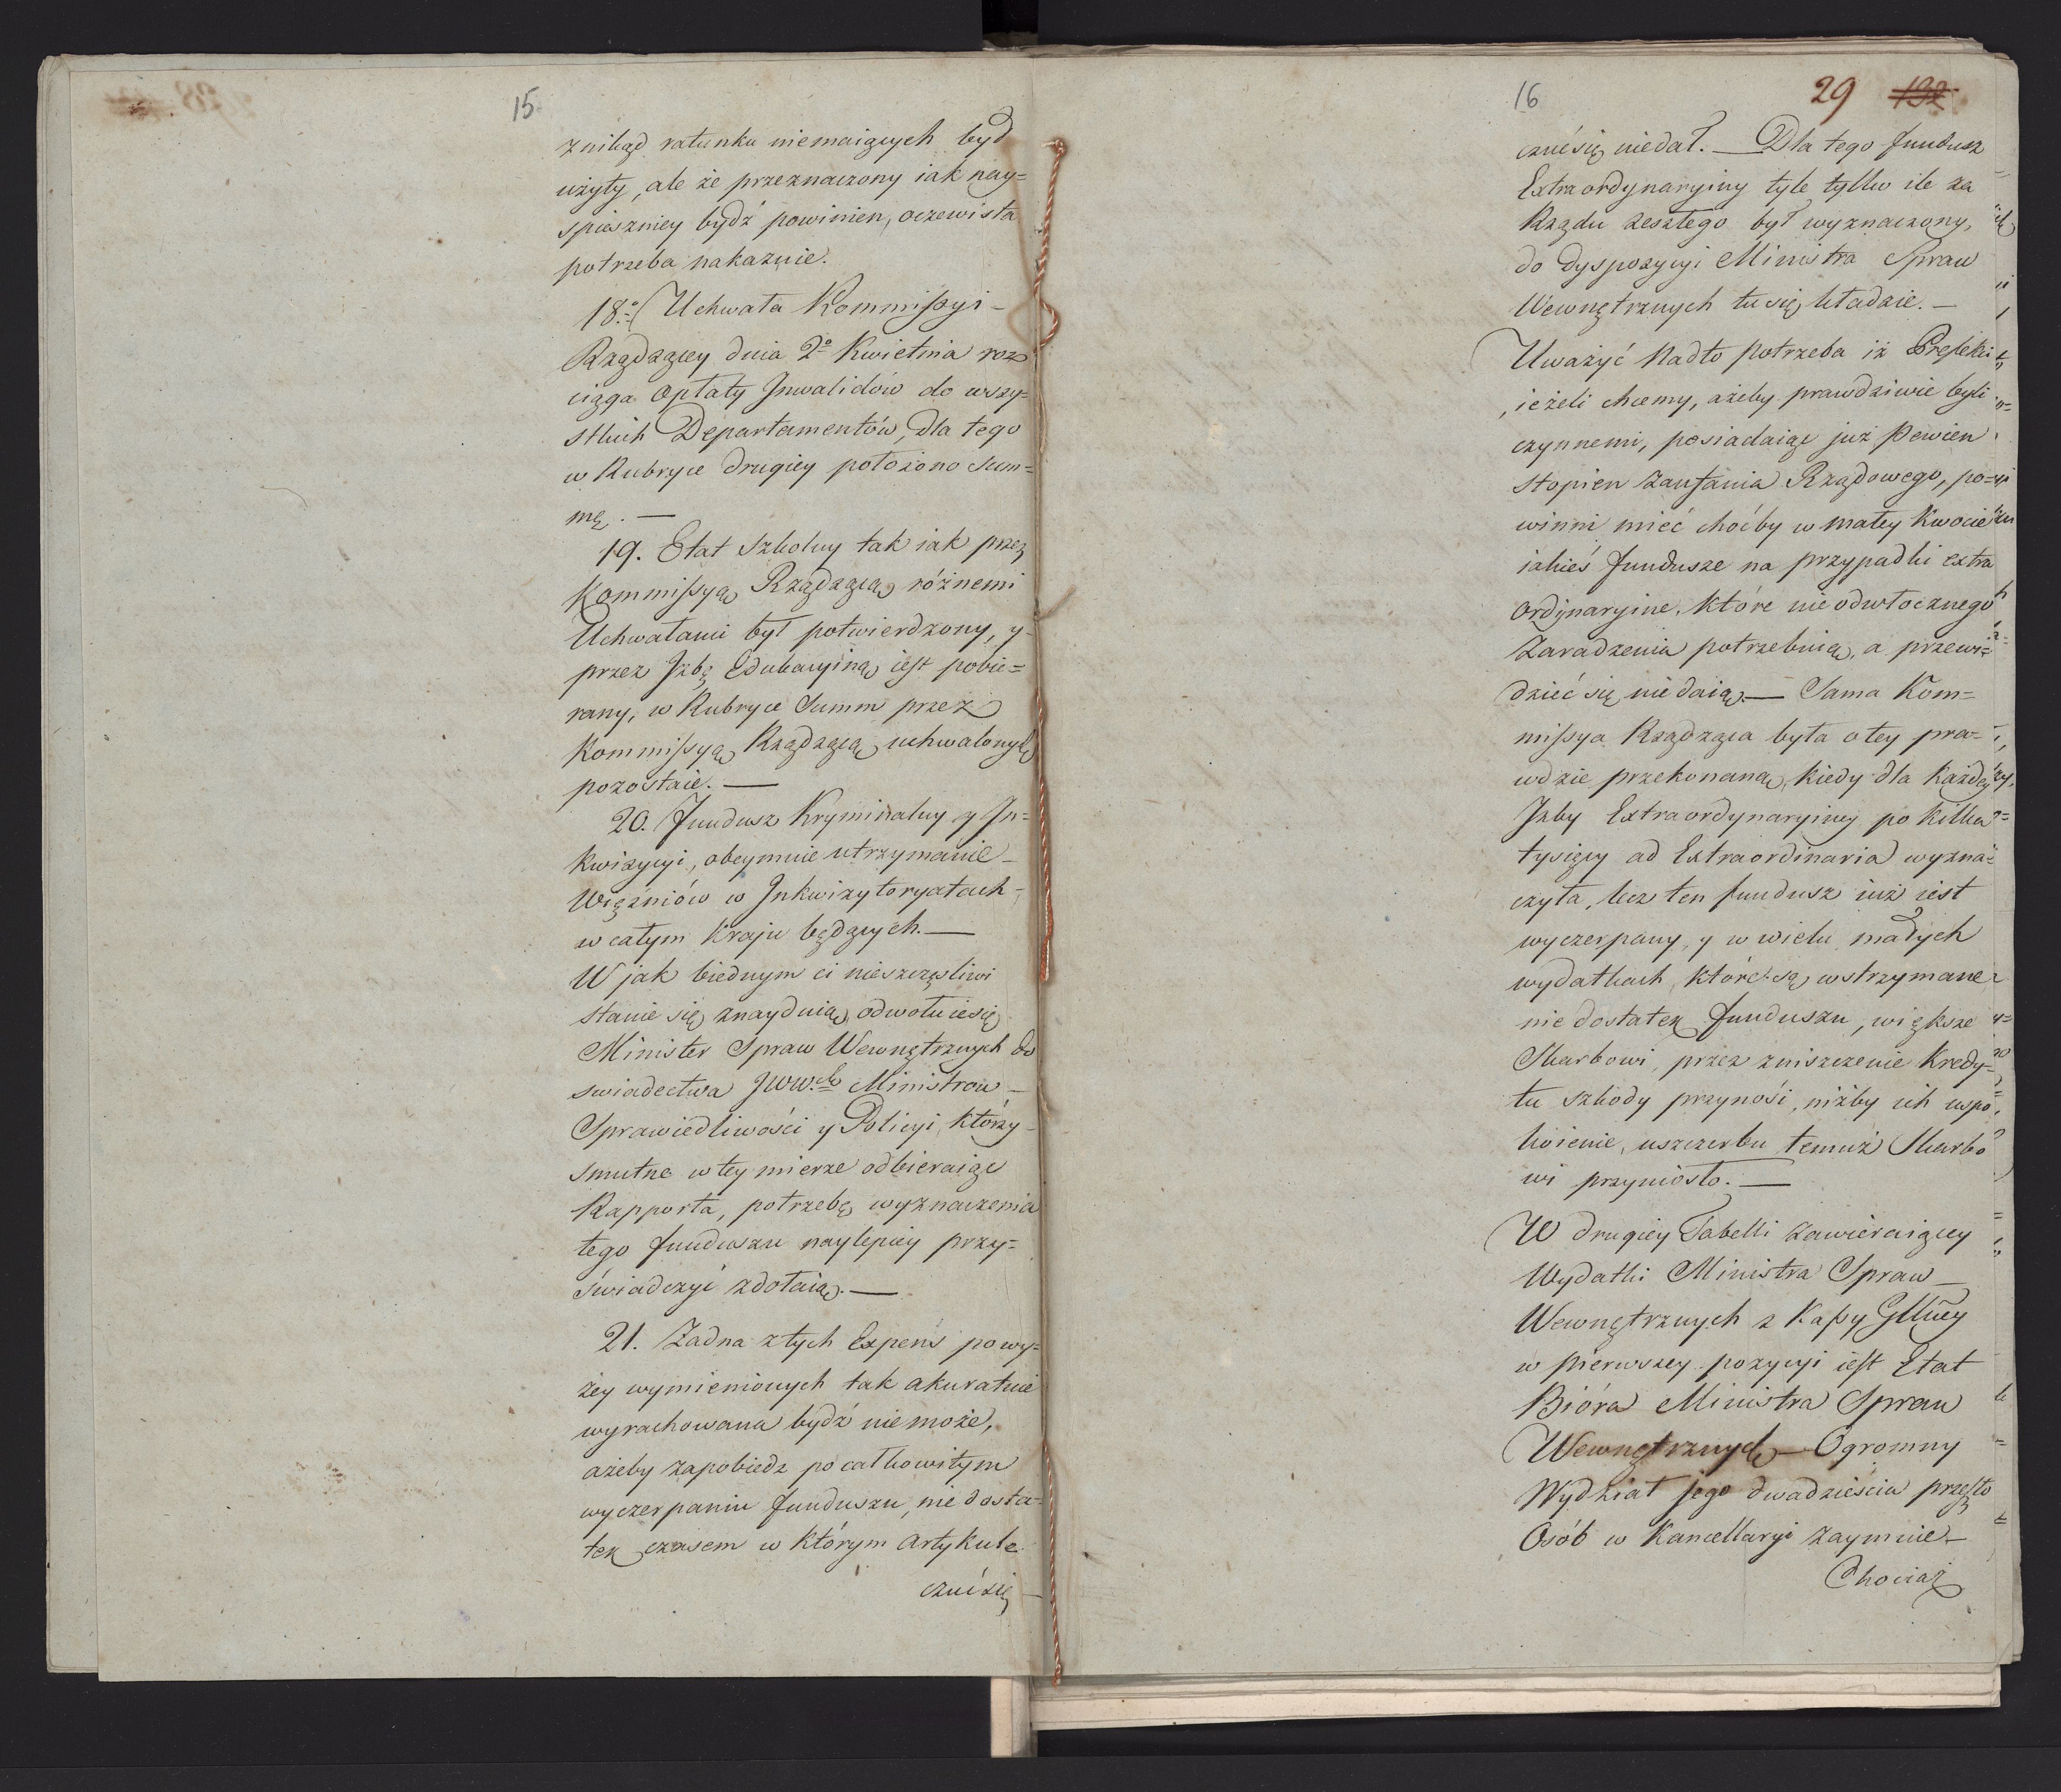 15
znikąd ratunku niemaiących był
użyty, ale że przeznaczony iak nay=
spieszniey bydź powinien, oczewista
potrzeba nakazuie.
18.o/ Uchwała Kommissyi -
Rządzącey dnia 2o Kwietnia roz
ciąga Opłaty Inwalidów do wszy=
stkich Departamentów, dla tego
w Rubryce drugiey położono Sum=
mę. —
19. Etat Szkolny tak iak przez
Kommissyą Rządzącą różnemi
Uchwałami był potwierdzony, y
przez Izbę Edukacyiną iest pobie=
rany, w Rubryce Summ przez
Kommissyą Rządzącą uchwalonych
pozostaie. —
20. Fundusz Kryminalny y In=
kwizycyi, obeymuie utrzymanie -
Więzniów w Inkwizytoryatach -
w całym Kraju będących. —
W jak biednym ci nieszczęsliwi
stanie się znayduią, odwołuie się
Minister Spraw Wewnętrznych do
swiadectwa JWW.ch Ministrow -
Sprawiedliwości y Policyi, którzy -
smutne w tey mierze odbieraiąc
Rapporta, potrzebę wyznaczenia
tego funduszu naylepiey przy=
świadczyć zdołaią. —
21. Żadna z tych Expens powy=
żey wymienionych tak akuratnie
wyrachowana bydź nie może,
ażeby zapobiedz po całkowitym
wyczerpaniu funduszu, niedosta=
tek czasem w którym Artykule
czuć się -
16
29 132
czuć się niedał. — Dla tego fundusz
Extraordynaryiny tyle tylko ile za
Rządu zeszłego był wyznaczony,
do dyspozycyi Ministra Spraw
Wewnętrznych tu się kładzie. —
Uważyć Nadto potrzeba iż Prefekci
, ieżeli chcemy, ażeby prawdziwie byli
czynnemi, posiadaiąc już Pewien
stopien Zaufania Rządowego, po=
winni mieć choćby w małey Kwocie
iakieś fundusze na przypadki extra
ordynaryine, które nieodwłocznego
Zaradzenia potrzebuią, a przewi=
dzieć się nie daią. — Sama Kom=
missya Rządząca była o tey pra=
wdzie przekonaną, kiedy dla Każdey
Izby Extraordynaryiney po kilka
tysięcy ad Extraordinaria wyzna=
czyła, lecz ten fundusz iuż iest
wyczerpany, y w wielu małych
wydatkach, które są wstrzymane
niedostatek funduszu, większe
Skarbowi, przez zniszczenie Kredy=
tu szkody przynosi, niżby ich uspo
koienie, uszczerbku temuż Skarbo
wi przyniosło. —
W drugiey Tabelli zawieraiącey
Wydatki Ministra Spraw -
Wewnętrznych z Kassy Gllney
w pierwszey pozycyi iest Etat
Bióra Ministra Spraw
Wewnętrznych — Ogromny
Wydział jego dwadzieścia przeszło
Osób w Kancellaryi zaymuie -
Chociaż